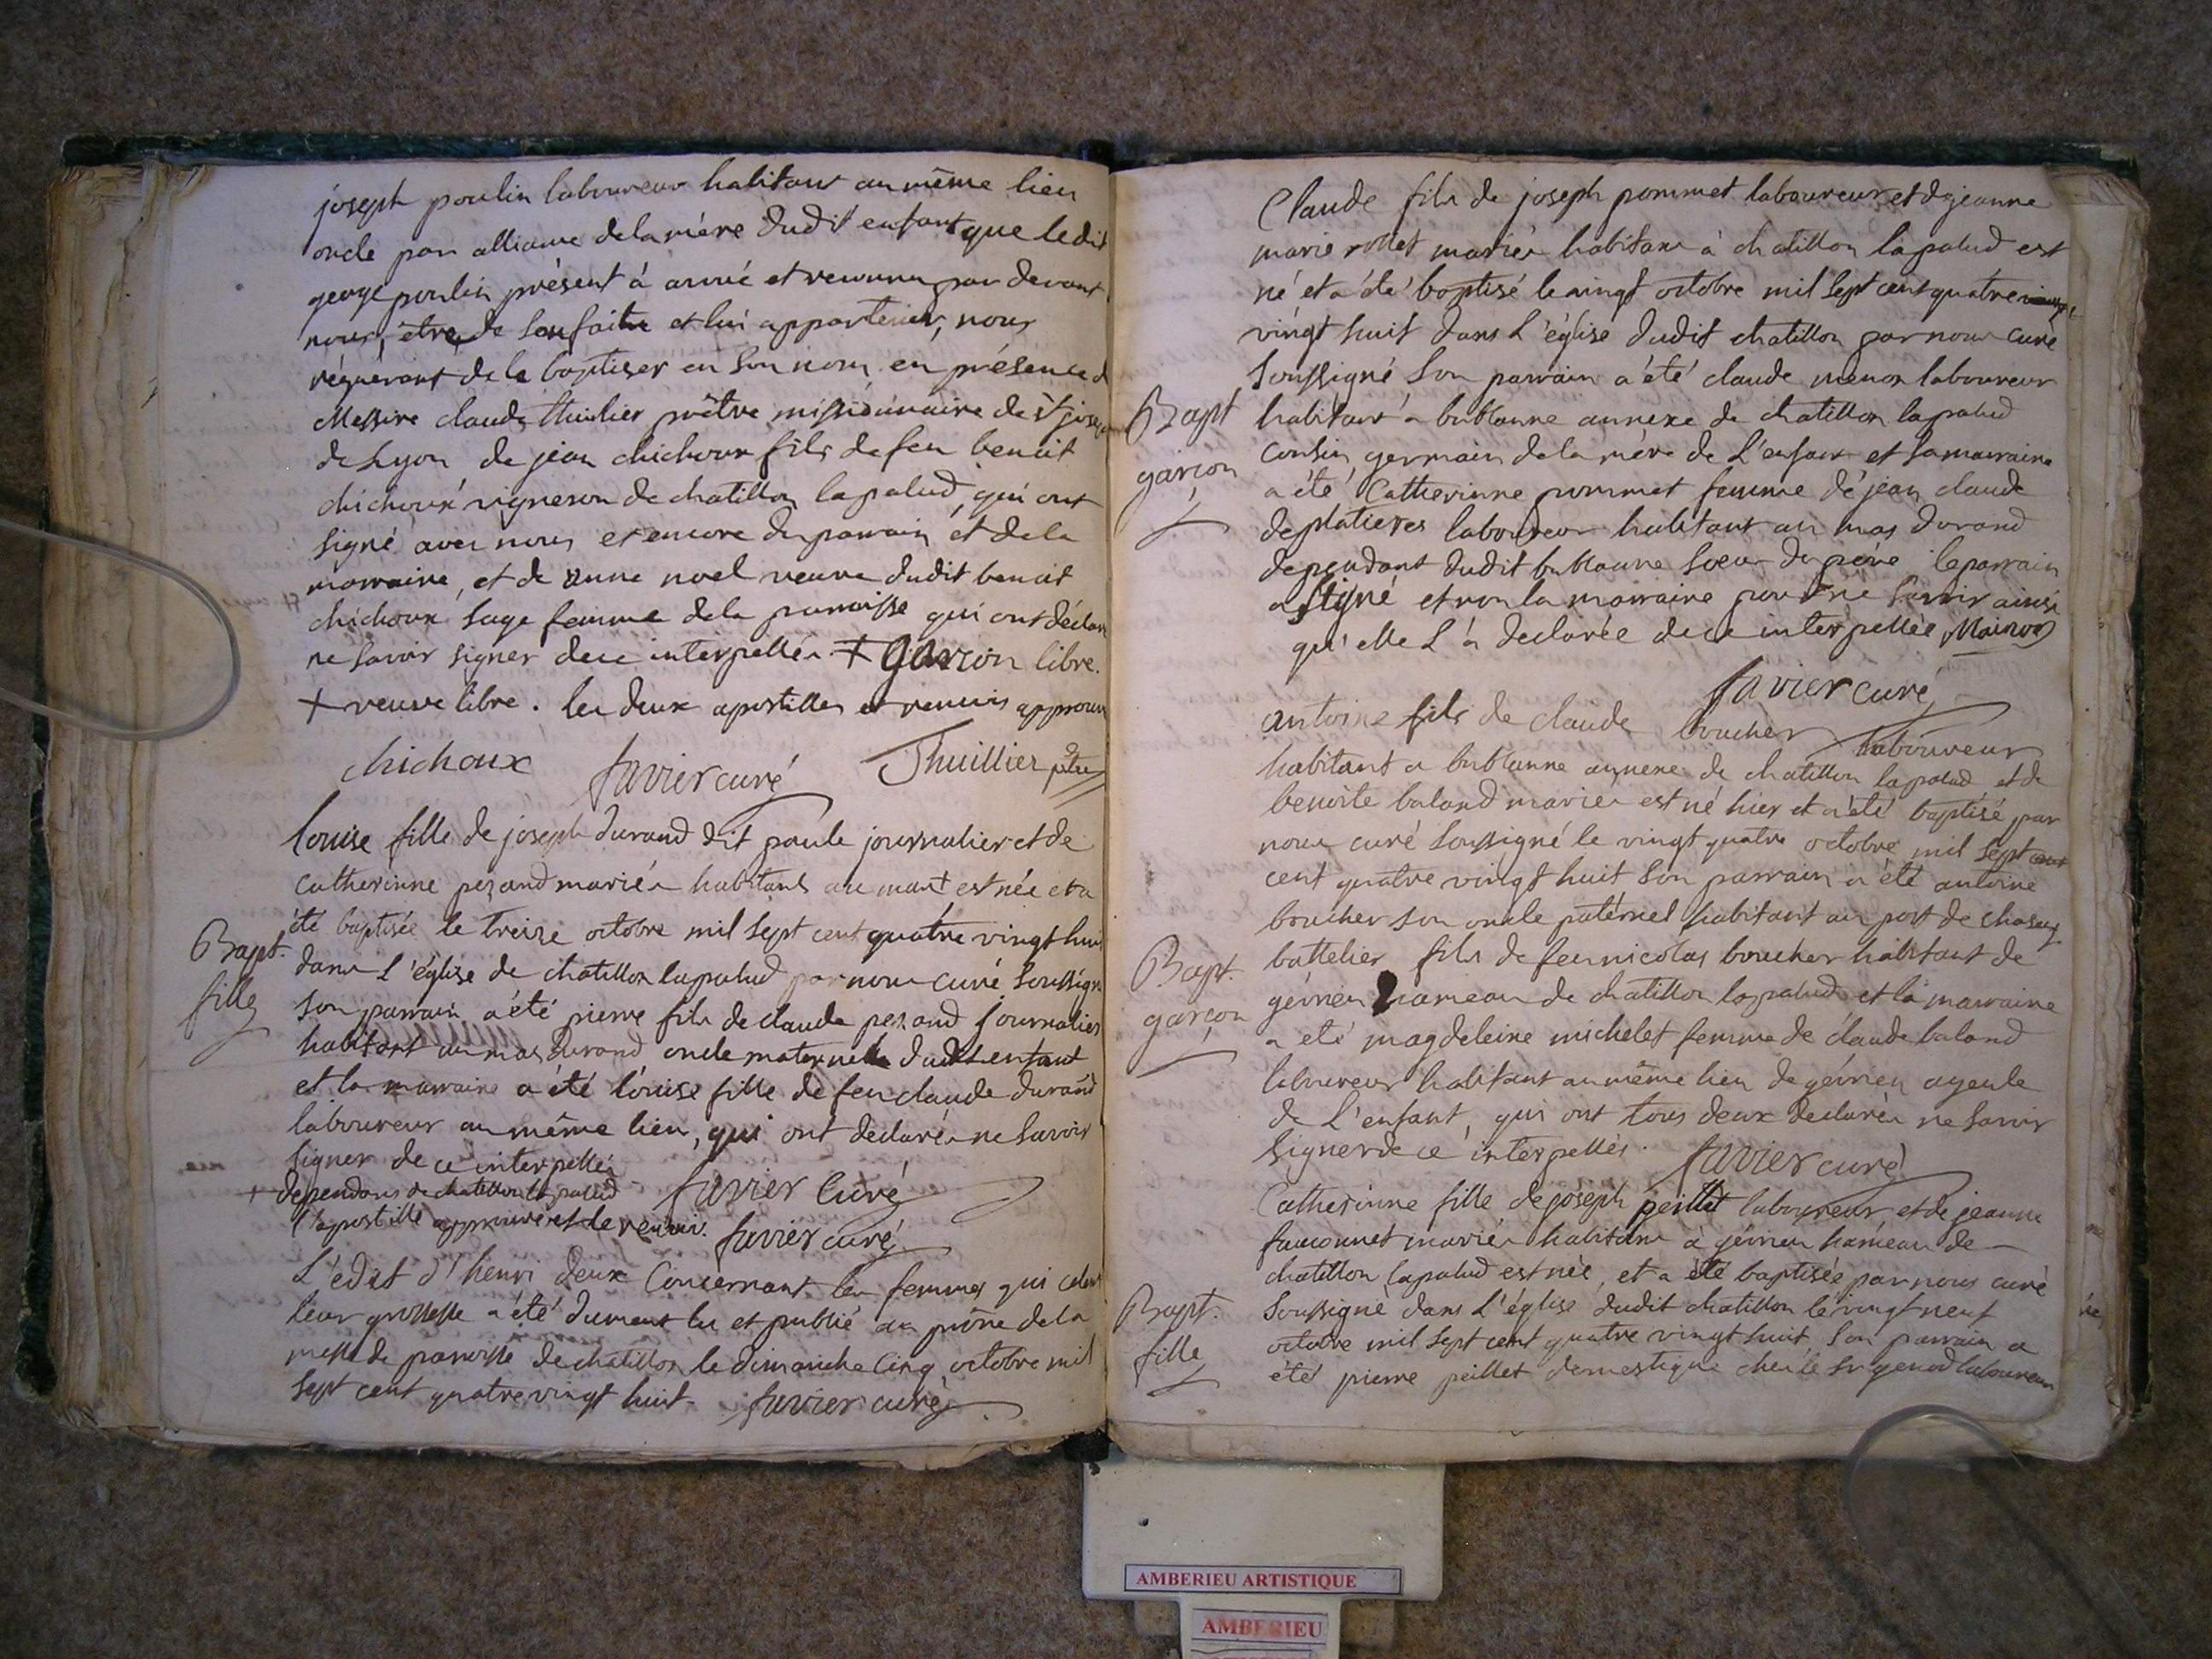 joseph poulin laboureur habitant au même lieu
oncle par alliance de la mère dudit enfant que ledit
george poulin présent à avoué et reconnu par devant
nous, être de son fait et lui appartenir, nous
réquérant de le baptiser en son nom en présence d
Messire claude thuilier prêtre missionnaire de st jose
de Lyon de jean chichoux fils de feu benoit
chichoux vigneron de chatillon lapalud, qui ont
signé avec nous et encore du parrain et de la
marraine, et de anne noel veuve dudit benoit
chichoux sage femme de la paroisse qui ont déclar
ne savoir signer de ce interpellés + garcon libre.
+ veuve libre. les deux apostilles et renvois approuv
chichoux favier curé Thuillier ptre
louise fille de joseph durand dit paule journalier et de
catherinne perand mariés habitants au mant est née et a
été baptisée le treize octobre mil sept cent quatre vingt hui
dans L'église de chatillon lapalud par nous curé soussign
Bapt.
fille
son parrain a été pierre fils de claude perand journalier
habitant au mas durand oncle maternel dudit enfant
et la marraine a été louise fille de feu claude durand
laboureur au même lieu, qui ont declarés ne savoir
signer de ce interpellés
+ dependans de chatillon lapalud favier Curé
l'apostille approuvé et le renvoi. favier curé
L'edit d'henri deux Concernant les femmes qui celent
leur grossesse a été dument lu et publié au prône de la
messe de paroisse de chatillon le dimanche cinq octobre mil
sept cent quatre vingt huit. favier curé
Claude fils de joseph pommet laboureur et de jeanne
marie rollet mariés habitans à chatillon lapalud est
né et a été baptisé le vingt octobre mil sept cent quatre
vingt huit dans L'église dudit chatillon par nous curé
soussigné son parrain a été claude menon laboureur
Bapt
garçon
habitant a bublanne annexe de chatillon lapalud
cousin germain de la mère de L'enfant et sa marraine
a été Catherinne pommet femme de jean claude
deplatieres laboureur habitant au mas durand
dependant dudit bublanne soeur du père le parrain
a signé et non la marraine pour ne savoir ainsi
qu'elle L'a declarée de ce interpellée
favier curé
antoine fils de claude boucher laboureur
habitant a bublanne annexe de chatillon lapalud et de
benoite baland mariés est né hier et a été baptisé par
nous curé soussigné le vingt quatre octobre mil sept
cent quatre vingt huit son parrain a été antoine
boucher son oncle paternel habitant au port de chasey
Bapt.
garçon
battelier fils de feu nicolas boucher habitant de
gévrieu hameau de chatillon lapalud et la marraine
a été magdeleine michelet femme de claude baland
laboureur habitant au même lieu de gévrieu ayeule
de L'enfant, qui ont tous deux declarés ne savoir
signer de ce interpellés. favier curé
Catherinne fille de joseph peillet laboureur et de jeanne
fauconnet mariés habitans à gévrieu hameau de
chatillon lapalud est née, et a été baptisée par nous curé
Bapt.
fille
soussigné dans L'église dudit chatillon le vingt neuf
octobre mil sept cent quatre vingt huit son parrain a
été pierre peillet domestique chez le sr genod laboureur
AMBERIEU ARTISTIQUE
AMBERIEU